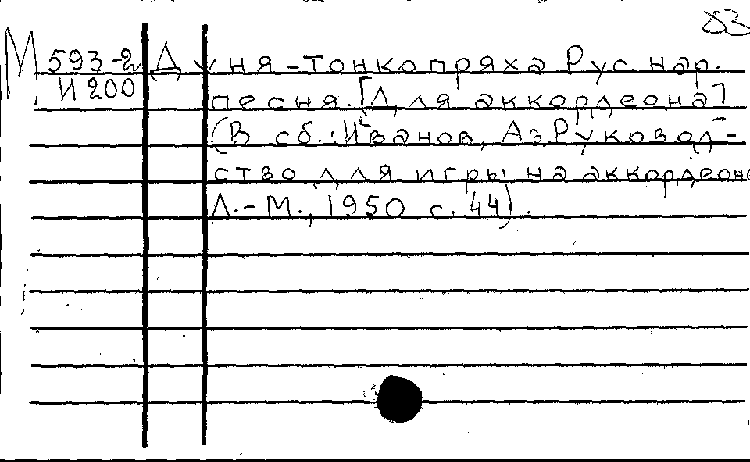 83
М 593-2 Дуня-тонкопряха Рус нар.
И 200 песня. [Для аккордеона]
(В сб.: Иванов, Аз. Руковод-
ство для игры на аккордеоне
Л.-М., 1950 с. 44).